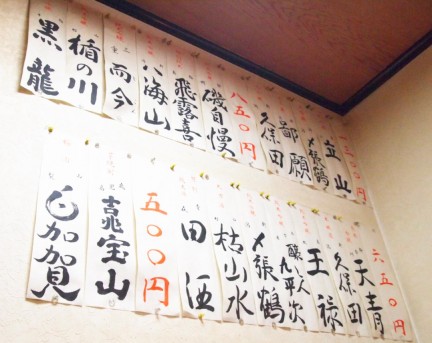 立山
〆張鶴
鄙願
久保田
八五〇円
磯自慢
飛露喜
八海山
而今
楯の川
黒龍
六五〇円
天青
久保田
王禄
醸し人九平次
〆張鶴
枯山水
田酒
五〇〇円
吉兆宝山
白加賀